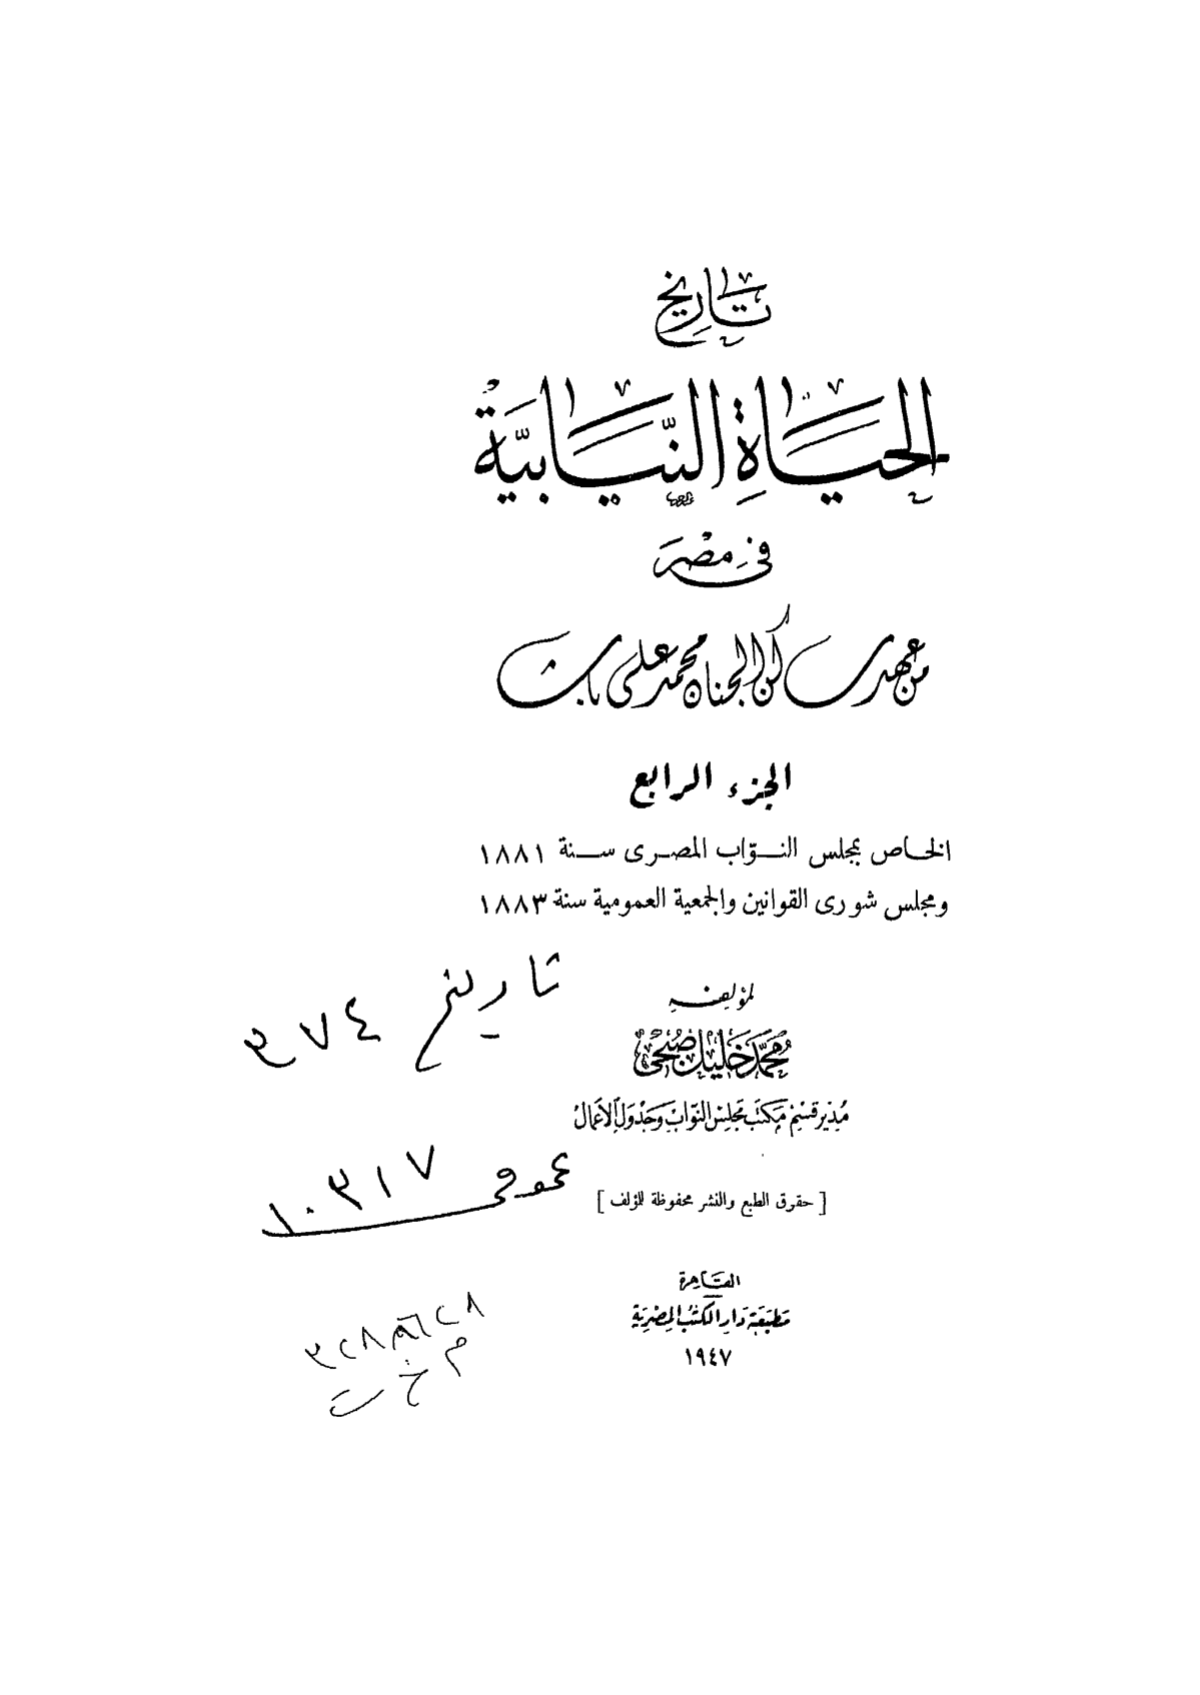 تاريخ
الحَيَاةِ النِّيَابيَّة
فى مصر
من عهد ساكن الجنان محمد على باشا
الجزء الرابع
الخاص بمجلس النوّاب المصرى سنة ١٨٨١
ومجلس شورى القوانين والجمعية العمومية سنة ١٨٨٣
تاريخ ٣٧٤
لمؤلفه
محمّد خليل صبحى
مدير قسم مكتب مجلس النوّاب وجدول الأعمال
عمومى ١٠٣١٧
[ حقوق الطبع والنشر محفوظة للمؤلف ]
القاهرة
مطبعة دار الكتب المصرية
١٩٤٧
م
خ
ت